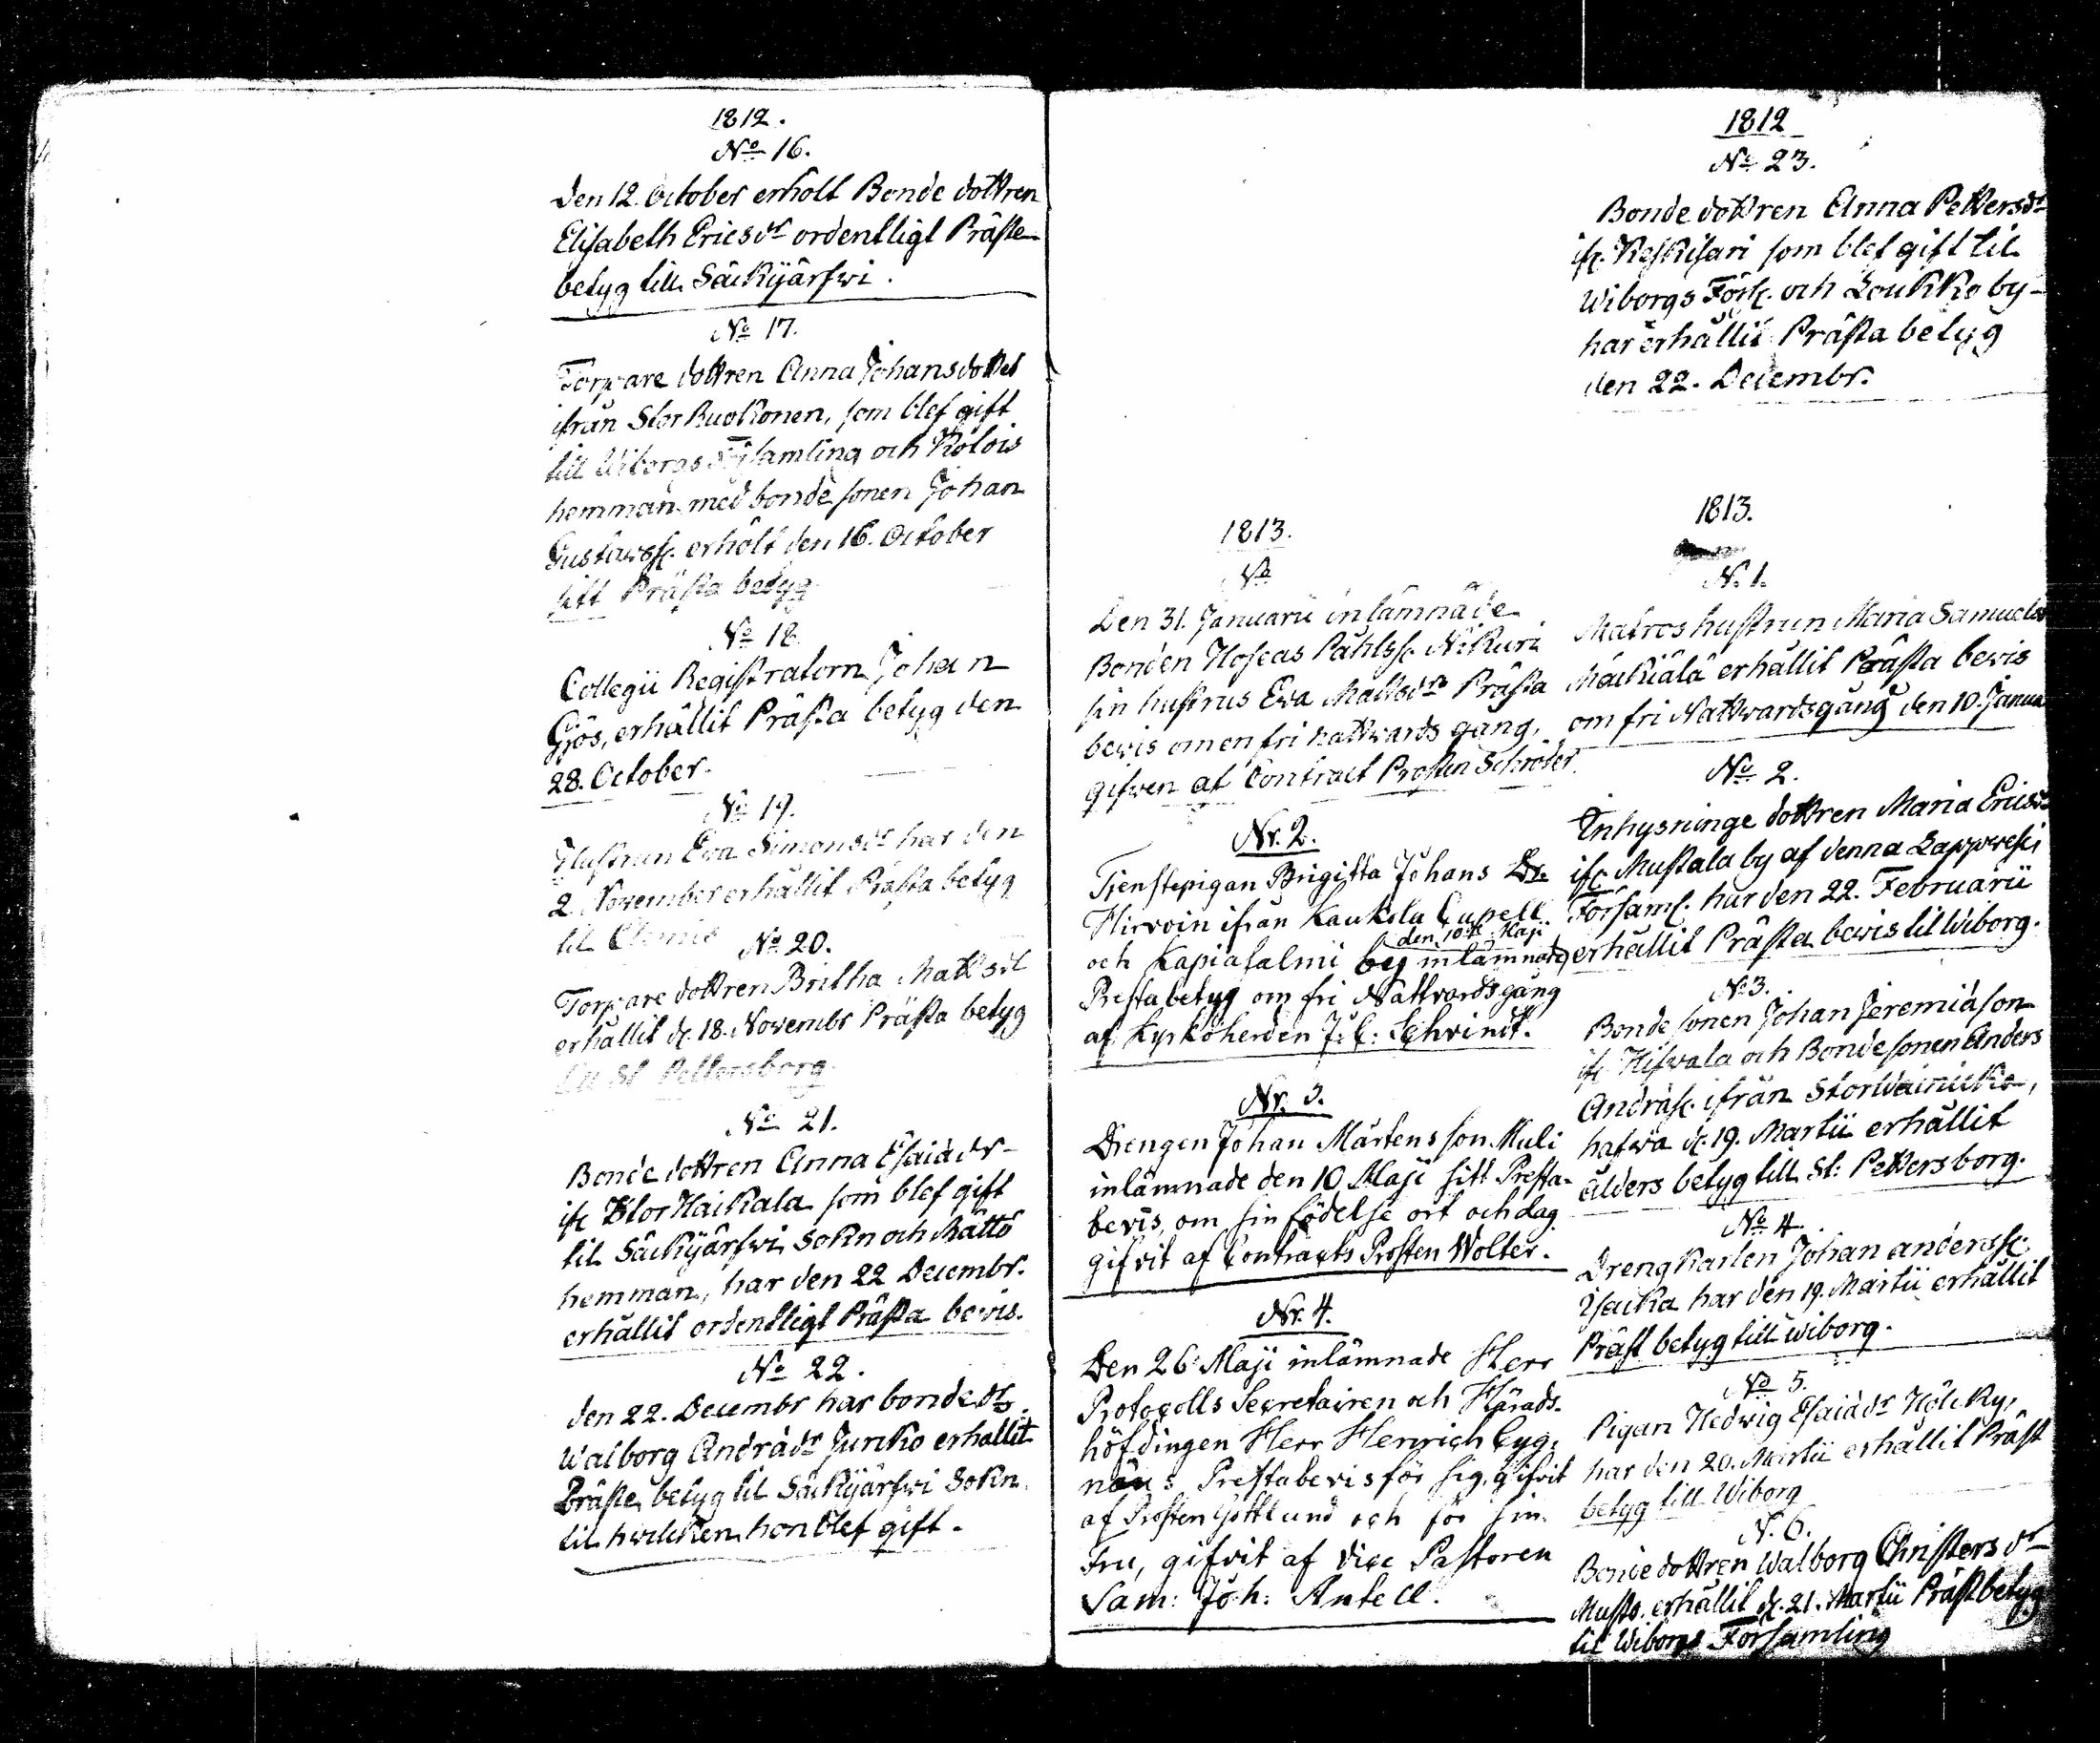 1812.
No 16.
Den 12. October erholt Bonde dottren
Elisabeth Ericsdr ordentligt Präste
betyg till Säckijärfwi.
No 17.
Torpare dottren Anna Johansdotter
ifrån Stor Kuokonen, som blef gift
till Wiborgs Församling och Kolois
hemman med bonde sonen Johan
Gustavss. erhölt den 16. October
sitt Prästa betyg
No 18
Collegii Registratorn Johan
Gjös, erhållit Prästa betyg den
28. October.
No 19.
Hustrun Eva Simonsdr har den
2. November erhållit Prästa betyg
til
No 20.
Torpare dottren Britha Mattsdr
erhållit d. 18. Novembr Prästa betyg
till St Pettersborg
No 21.
Bonde dottren Anna Esaiädr
ifr Stor Haikala som blef gift
til Säckijärfwi Sokn och Mättö
hemman, har den 22 Decembr.
erhållit ordentligt Prästa bevis.
No 22.
Den 22. Decembr har bonde dr
Walborg Andrädr Junko erhållit
Präste betyg til Säckijärfwi Sokn
til hvilcken hon blef gift.
1813.
No
Den 31. Januarii inlämnade
Bonden Hoseas Påhlss. Nikuri
sin hustrus Eva Mattsdrs Prästa
bevis om en fri nattwards gång,
gifwen af Contract Prosten Schröder.
Nr. 2.
Tjenstepigan Brigitta Johans Dr.
Hirvoin ifrån Kaukola Capell
den 10de Maji
och Kapiasalmi by inlämnade
Prestabetyg om fri Nattvardsgång
af Kyrkoherden J. C: Schvindt.
Nr. 3.
Drengen Johan Mårtensson Muli
inlämnade den 10 Maji sitt Presta-
bevis, om sin födelse ort och dag
gifvit af Contracts Prosten Wolter.
Nr. 4.
Den 26 Maji inlämnade Herr
Protocolls Secretairen och Härads-
höfdingen Herr Henrich Cyg-
næus Prestabevis för sig, gifvit
af Prosten Gottlund och för sin
Fru, gifvit af Vice Pastoren
Sam: Joh: Antell.
1812
No 23.
Bonde dottren Anna Pettersdr
ifr. Keskisari som blef gift til
Wiborgs Förs. och Loukko by
har erhållit Prästa betyg
den 22. Decembr.
1813.
N. 1.
Matros hustrun Maria Samuelsdr
Mäckiälä erhållit Prästa bevis
om fri Nattwardsgång den 10. Janua
No 2.
Inhysninge dottren Maria Ericsdr
ifr Mustala by af denna Lappwesi
Församl. har den 22. Februarii
erhållit Prästa bevis til Wiborg.
No 3.
Bonde sonen Johan Jeremiäson
ifr Hifwala och Bonde sonen Anders
Andräss. ifrån StorWainicka,
hafwa d. 19. Martii erhållit
ålders betyg till St: Pettersborg.
No 4.
Drengkarlen Johan anderss.
Ysacka har den 19. Martii erhållit
Präst betyg till wiborg.
No 5.
Pigan Hedwig Esaiädr Hölcky,
har den 20. Martii erhållit Präst
betyg till Wiborg
N. 6.
Bonde dottren Walborg Christersdr
Musto. erhållit d. 21. Martii Präst betyg
til Wiborgs Församling